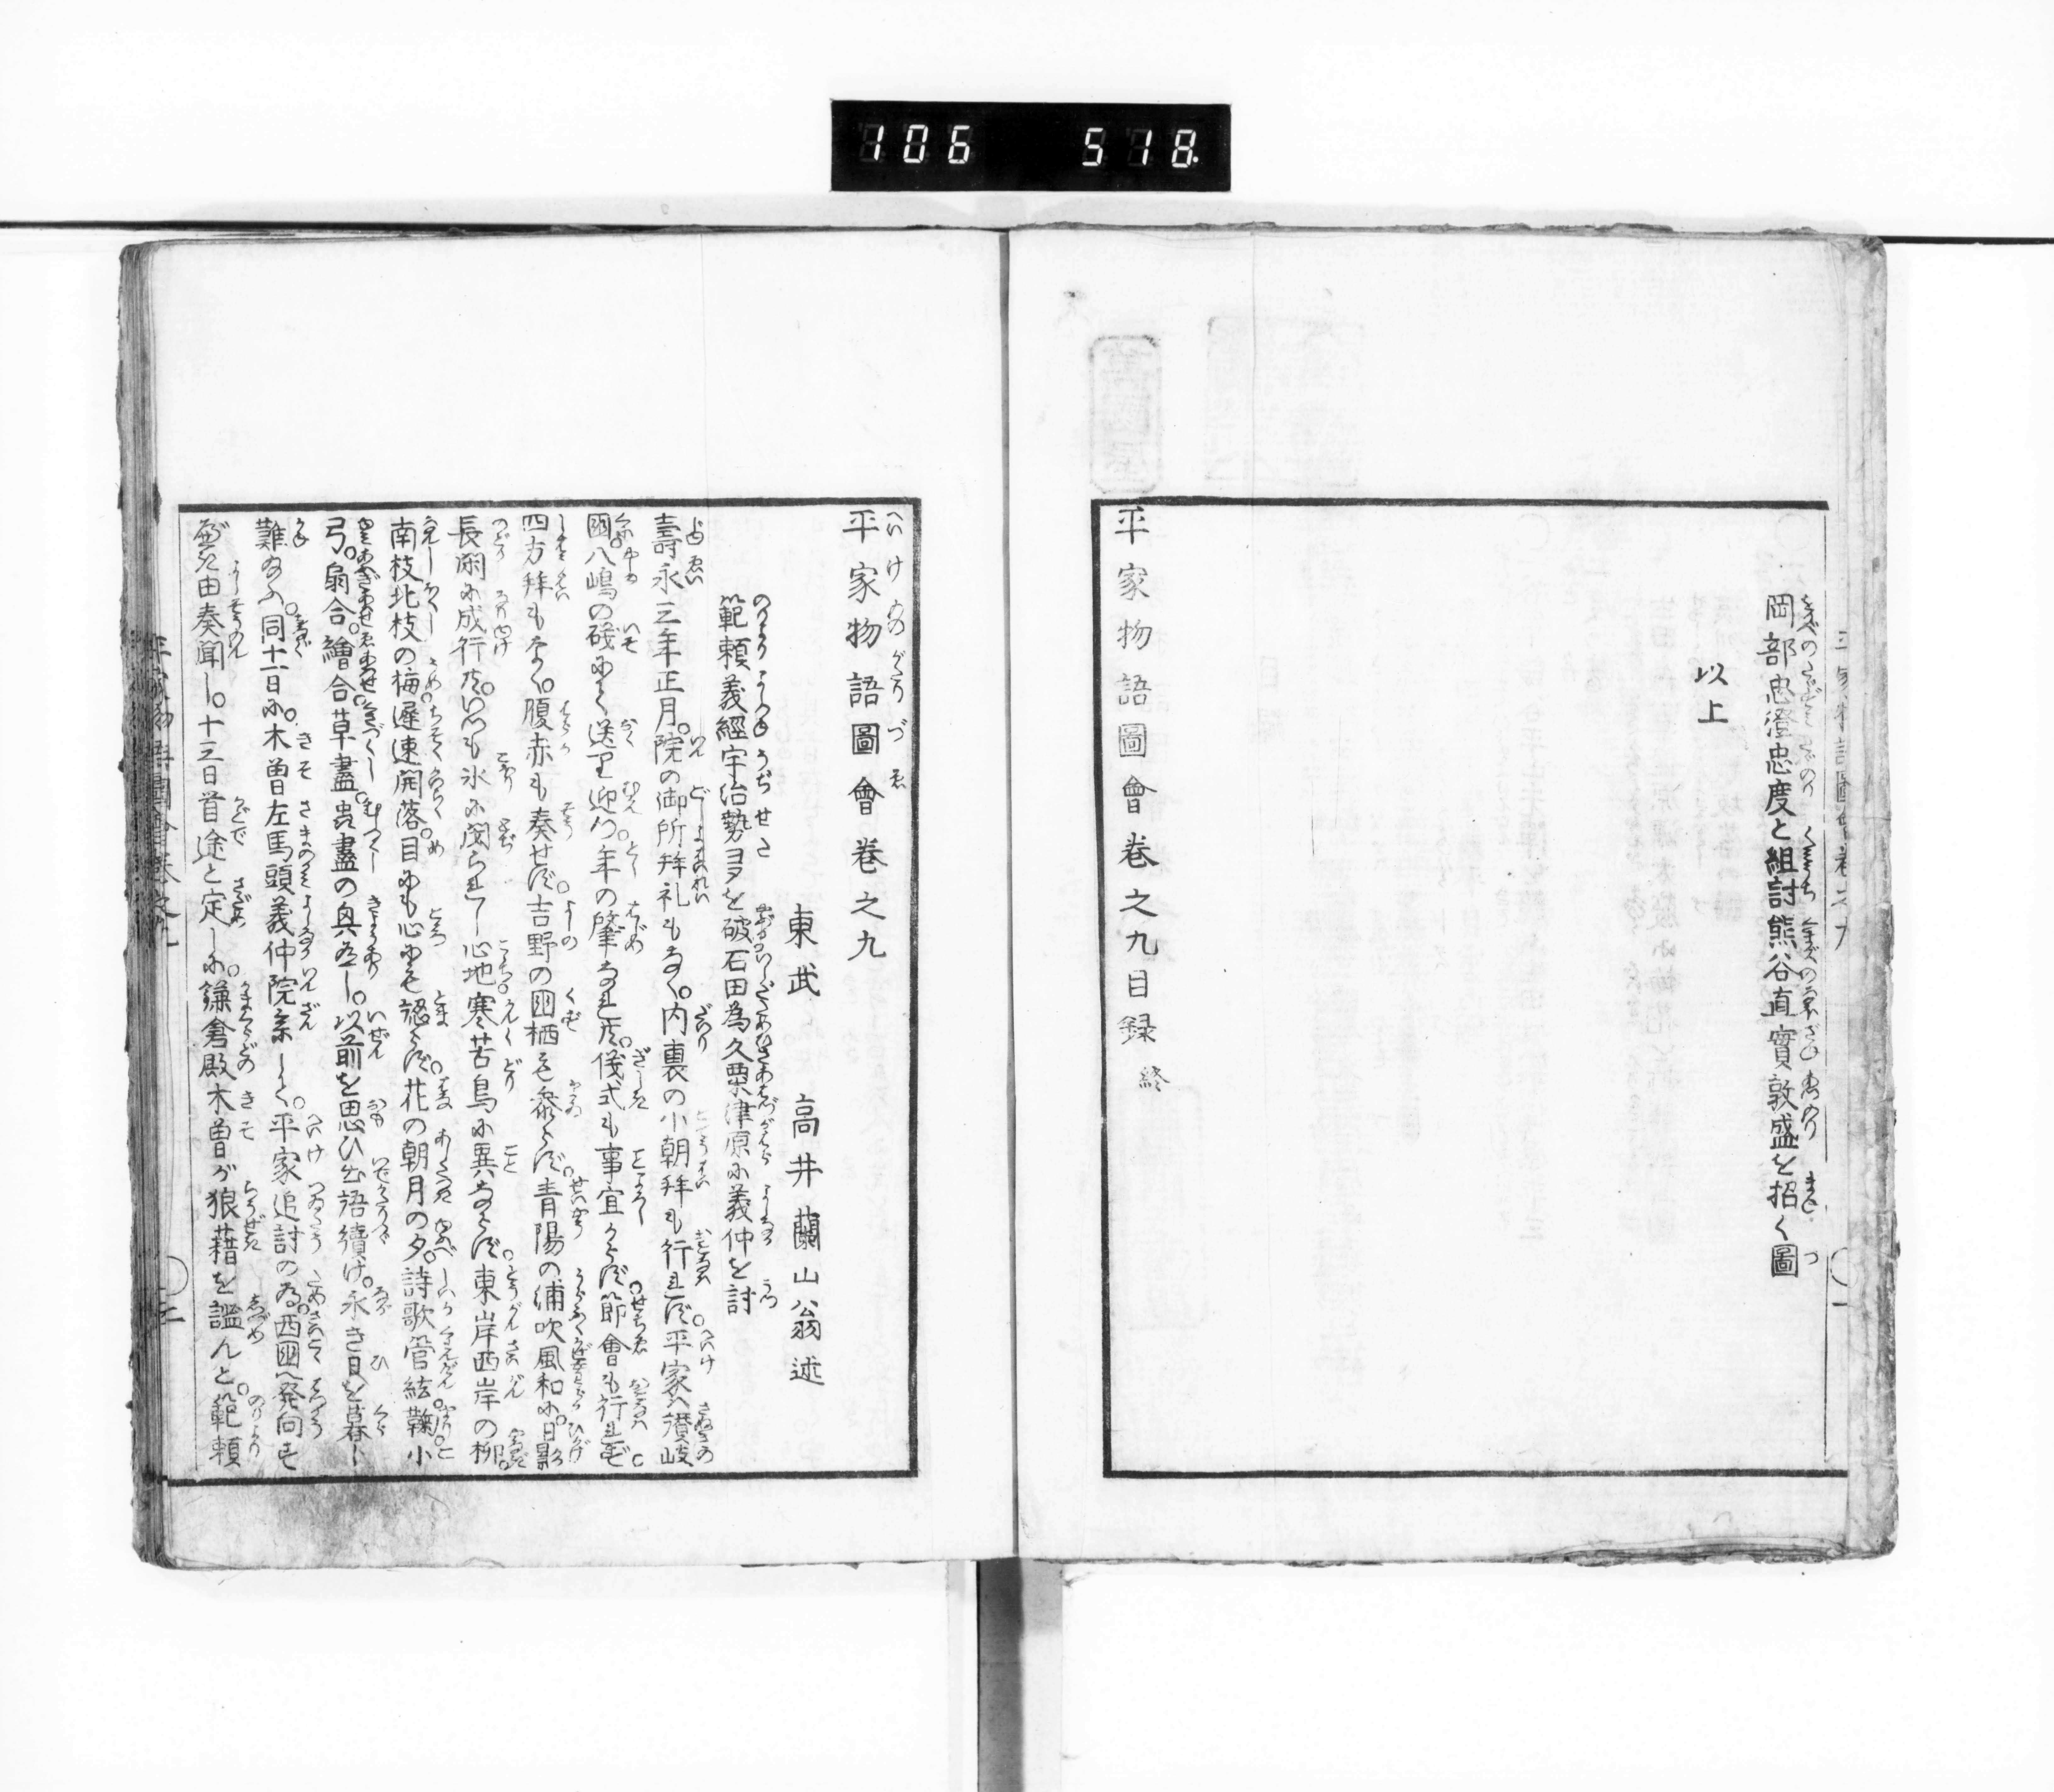 106 518.
岡部忠澄忠度と組討熊谷直實敦盛を招く圖
以上
平家物語圖會巻之九目録 終
平家物語圖會巻之九
東武 高井蘭山翁述
範頼義經宇治勢ヨタを破石田為久粟津原に義仲を討
壽永三年正月。院の御所拝礼もなく。内裏の小朝拝も行れず。平家ハ讃岐
國八嶋の礒にて送り迎つ。年の肇なれ共。儀式も事宜からず。節會も行れず。
四方拝もなく。腹赤も奏せず。吉野の國栖も参らず。青陽の浦吹風和に。日影
長閑に成行共。いつも氷に閉られし心地。寒苦鳥に異ならず。東岸西岸の柳。
南枝北枝の梅。遅速開落。目にも心にも認らず。花の朝月の夕。詩歌管絃鞠小
弓。扇合。繪合。草盡。虫盡の興为し。以前を思ひ出語續け。永き日を暮し
難給ふ。同十一日に。木曽左馬頭義仲院参して。平家追討の為。西國へ発向す
べき由奏聞し。十三日首途と定しに。鎌倉殿木曽が狼藉を謐んと。範頼